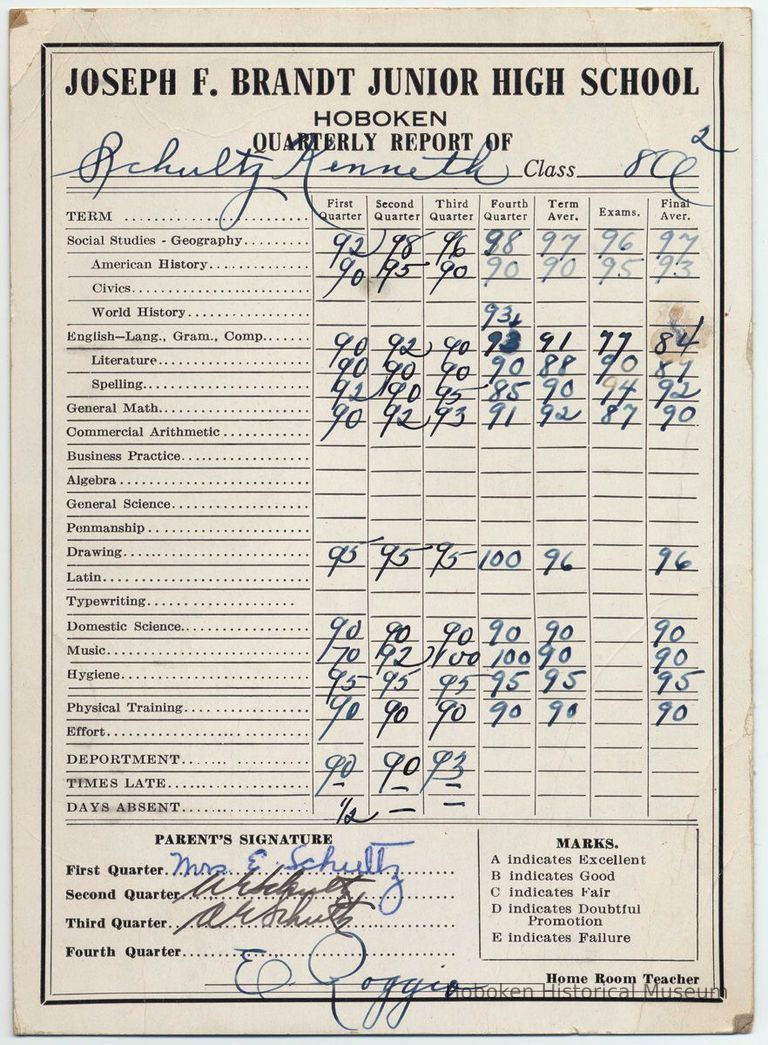 JOSEPH F. BRANDT JUNIOR HIGH SCHOOL
HOBOKEN
QUARTERLY REPORT OF
Schultz Kenneth Class 8 2
TERM First Quarter Second Quarter Third Quarter Fourth Quarter Term Aver. Exams. Final Aver.
Social Studies - Geography 92 98 96 98 97 96 97
American History 90 95 90 90 90 95 93
Civics
World History 93
English—Lang., Gram., Comp. 90 92 90 93 91 77 84
Literature 90 90 90 90 88 90 89
Spelling 92 90 95 85 90 94 92
General Math. 90 92 93 91 92 87 90
Commercial Arithmetic
Business Practice
Algebra
General Science
Penmanship
Drawing 95 95 95 100 96 96
Latin
Typewriting
Domestic Science 90 90 90 90 90 90
Music 70 92 100 100 90 90
Hygiene 95 95 95 95 95 95
Physical Training 90 90 90 90 90 90
Effort
DEPORTMENT 90 90 93
TIMES LATE — — —
DAYS ABSENT 1/2 — —
PARENT'S SIGNATURE
First Quarter Mrs E. Schultz
Second Quarter Schultz
Third Quarter Schultz
Fourth Quarter
E. Roggio
Home Room Teacher
MARKS.
A indicates Excellent
B indicates Good
C indicates Fair
D indicates Doubtful
Promotion
E indicates Failure
Hoboken Historical Museum